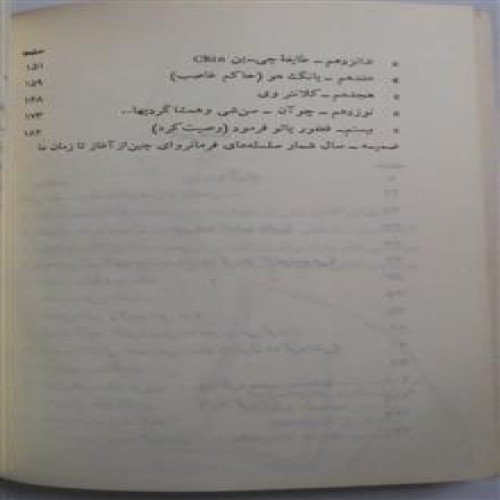 صفحه
» شانزدهم ـ طایفهٔ چی-ین Chin ۱۵۱
» هفدهم ـ یانگ هو (حاکم غاصب) ۱۵۹
» هیجدهم ـ کلانتر وی ۱۶۸
» نوزدهم ـ چوآن ـ سن‌شی وهمشاگردیها... ۱۷۳
» بیستم ـ فغفور یائو فرمود (وصیت کرد) ۱۸۲
ضمیمه ـ سال شمار سلسله‌های فرمانروای چین از آغاز تا زمان ما